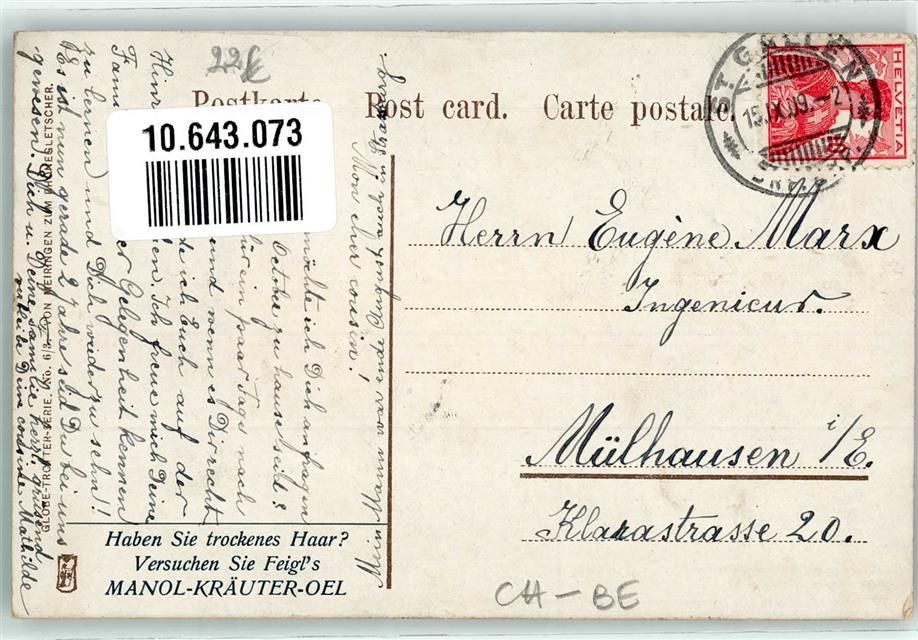 22£
Postkarte Post card. Carte postale.
10.643.073
ST. GALLEN
15.IX.09.-2
HELVETIA
Herrn Eugène Marx
Ingenieur.
Mülhausen i/E.
Klarastrasse 20.
Mon cher cousin!
möchte ich Dich anfragen
October zu hause seid &
für ein paar Tage nach
und wenn es Dir recht
ich Euch auf der
Hinr en. Ich freue mich Deine
Fam er Gelegenheit kennen
zu lernen und Dich wieder zu sehn!
Es ist nun gerade 2 Jahre seid Du bei uns
gewesen. Dich u. Deine Familie herzl. grüssend
verbleibe Deine cousine Mathilde
GLOBE-TROTTER-SERIE. No. 6/3. VON MEIRINGEN ZUM
Haben Sie trockenes Haar?
Versuchen Sie Feigl's
MANOL-KRÄUTER-OEL
CH - BE